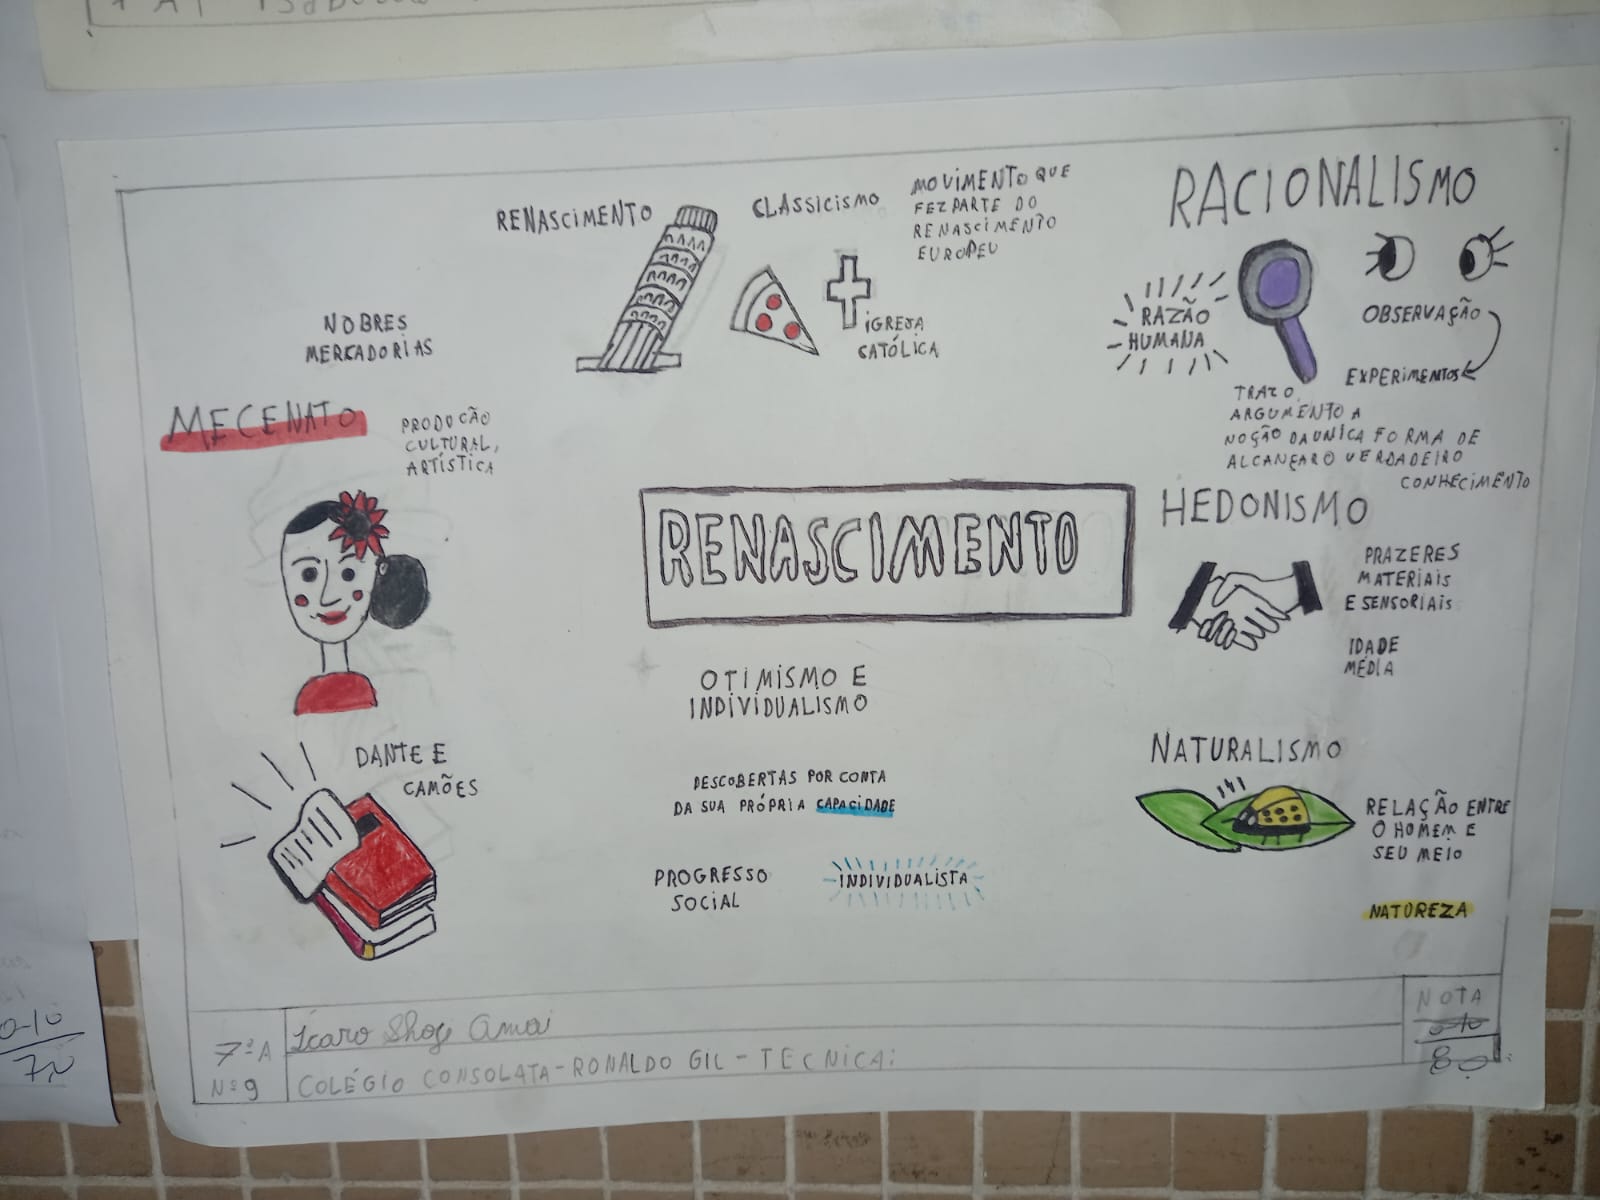 RENASCIMENTO
CLASSICISMO
MOVIMENTO QUE
FEZ PARTE DO
RENASCIMENTO
EUROPEU
IGREJA
CATÓLICA
RACIONALISMO
RAZÃO
HUMANA
OBSERVAÇÃO
EXPERIMENTOS
ARGUMENTO A
NOÇÃO DA UNICA FORMA DE
ALCANÇAR O VERDADEIRO
CONHECIMENTO
NOBRES
MERCADORIAS
MECENATO
PRODUCÃO
CULTURAL,
ARTÍSTICA
RENASCIMENTO
HEDONISMO
PRAZERES
MATERIAIS
E SENSORIAIS
IDADE
MÉDIA
OTIMISMO E
INDIVIDUALISMO
DESCOBERTAS POR CONTA
DA SUA PRÓPRIA CAPACIDADE
PROGRESSO
SOCIAL
INDIVIDUALISTA
DANTE E
CAMÕES
NATURALISMO
RELAÇÃO ENTRE
O HOMEM E
SEU MEIO
NATUREZA
7ºA
Nº9
Ícaro
COLÉGIO CONSOLATA-RONALDO GIL-TECNICA:
NOTA